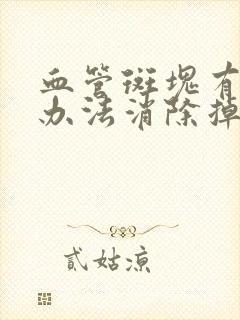 血管斑块有
办法消除掉
贰姑凉